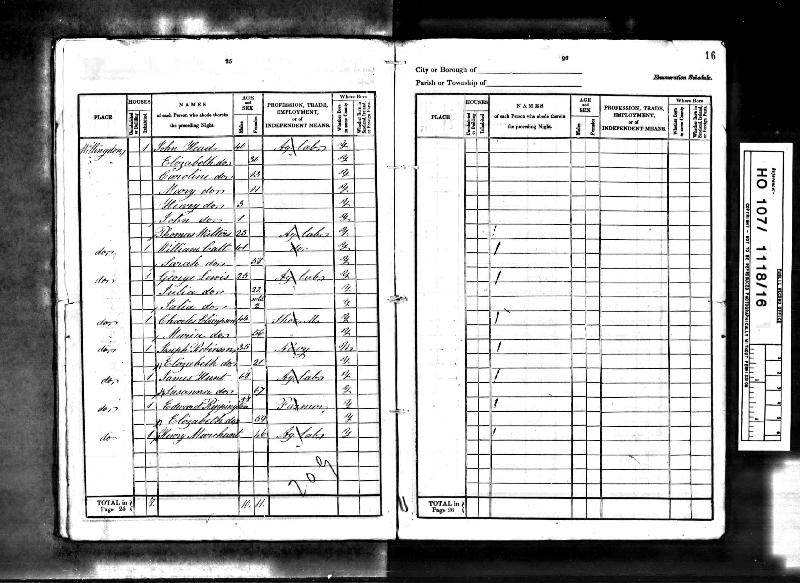 25
HOUSES
AGE and SEX
Where Born
PLACE
Uninhabited or Building
Inhabited
NAMES
of each Person who abode therein the preceding Night.
Males
Females
PROFESSION, TRADE, EMPLOYMENT, or of INDEPENDENT MEANS.
Whether Born in same County
Whether Born in Scotland, Ireland, or Foreign Parts.
Willingdon 1 John Head 40 Ag labr Y
Elizabeth do 30 Y
Caroline do 13 Y
Mary do 11 Y
Henry do 3 Y
John do 1 Y
Thomas 25 Ag labr Y
do 1 William Catt 41 do Y
Sarah do Y
do 1 George Lewis 25 Ag labr Y
Julia do 22 Y
Julia do 2 Y
do 1 Charles 44 Y
Maria do 56 Y
do 1 Joseph Robinson 35
Elizabeth do 21 Y
do 1 James Hunt Ag labr Y
Susanna do 67 Y
do 1 Edward Farmer Y
Elizabeth do Y
do 1 Henry Marchant 46 Ag labr Y
209
TOTAL in Page 25 7 10 11
26
16
City or Borough of
Parish or Township of
Enumeration Schedule.
HOUSES
AGE and SEX
Where Born
PLACE
Uninhabited or Building
Inhabited
NAMES
of each Person who abode therein the preceding Night.
Males
Females
PROFESSION, TRADE, EMPLOYMENT, or of INDEPENDENT MEANS.
Whether Born in same County
Whether Born in Scotland, Ireland, or Foreign Parts.
TOTAL in Page 26
Reference:-
HO 107/1118/16